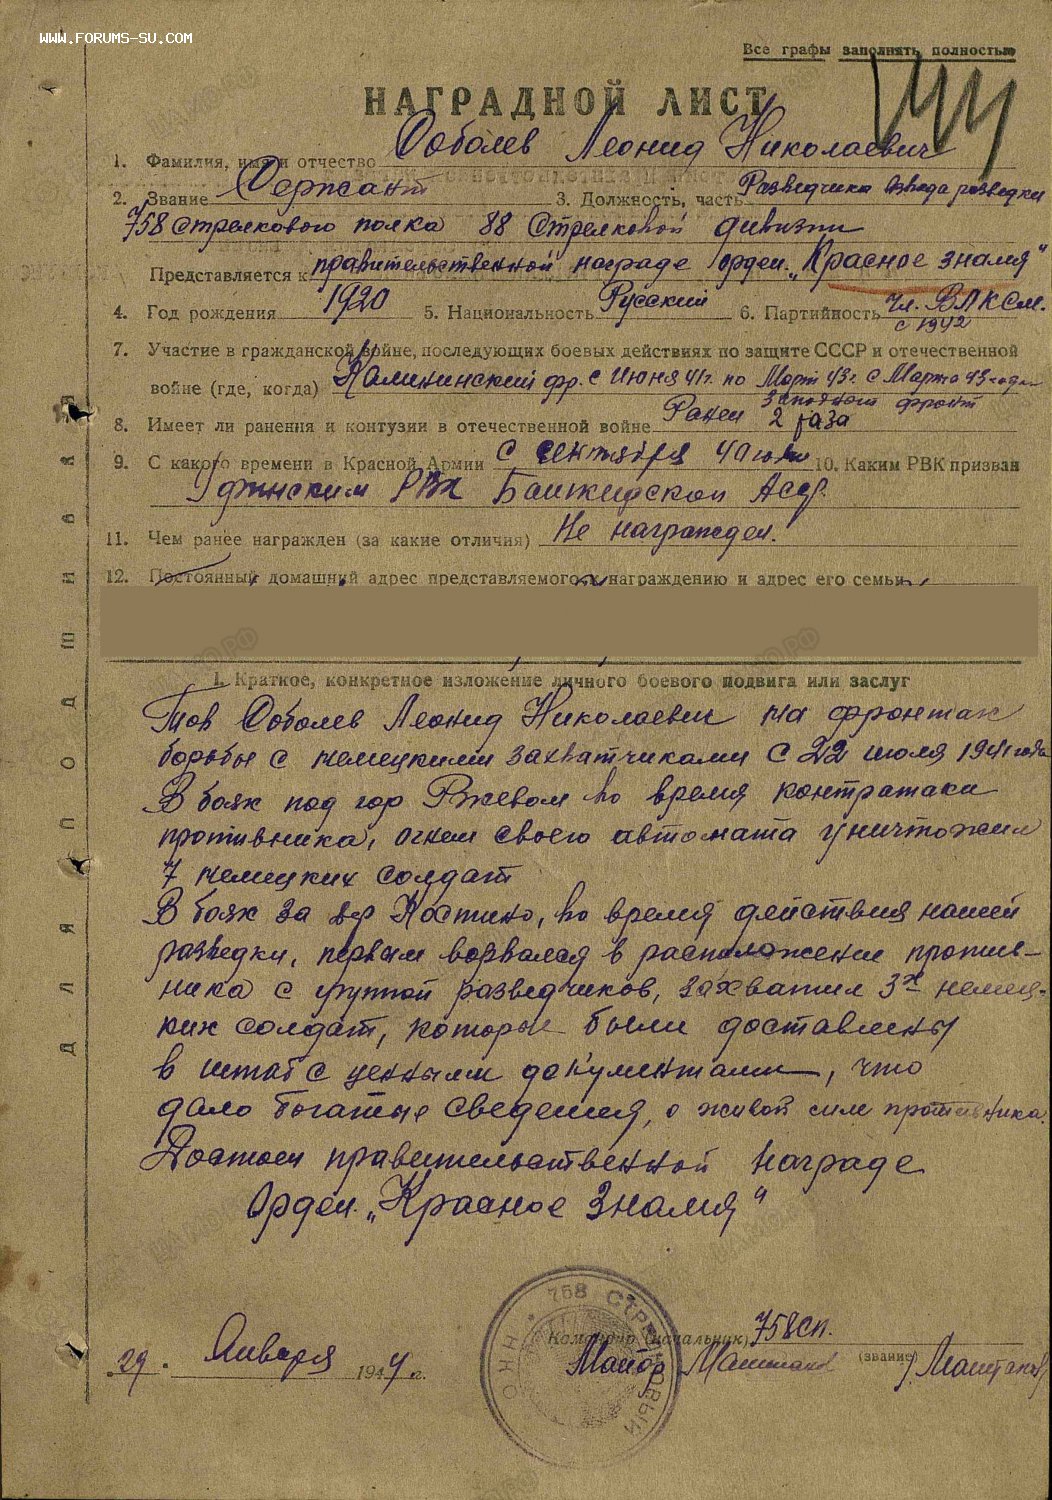 WWW.FORUMS-SU.COM
Все графы заполнять полностью
НАГРАДНОЙ ЛИСТ
1. Фамилия, имя и отчество Соболев Леонид Николаевич
2. Звание Сержант 3. Должность, часть Разведчика взвода разведки
758 стрелкового полка 88 Стрелковой дивизии
Представляется к правительственной награде орден „Красное знамя"
4. Год рождения 1920 5. Национальность Русский 6. Партийность Чл. ВЛКСМ.
с 1942
7. Участие в гражданской войне, последующих боевых действиях по защите СССР и отечественной
войне (где, когда) Калининский фр. с Июня 41г. по Март 43г. с Марта 43 года
Западный фронт
8. Имеет ли ранения и контузии в отечественной войне Ранен 2 раза
9. С какого времени в Красной Армии с сентября 40 10. Каким РВК призван
Уфинским РВК Башкирской Асср.
11. Чем ранее награжден (за какие отличия) Не награжден.
12. Постоянный домашний адрес представляемого к награждению и адрес его семьи
I. Краткое, конкретное изложение личного боевого подвига или заслуг
Тов Соболев Леонид Николаевич на фронтах
борьбы с немецкими захватчиками с 22 июля 1941 года
В боях под гор Ржевом во время контратаки
противника, огнем своего автомата уничтожил
7 немецких солдат
В боях за дер Костино, во время действия нашей
разведки, первым ворвался в расположение против-
ника с группой разведчиков, захватил 3х немец-
ких солдат, которые были доставлены
в штаб с ценными документами, что
дало богатые сведения, о живой силе противника.
Достоен правительственной награде
Орден „Красное Знамя"
758 СТРЕЛКОВЫЙ
Командир (начальник) 758 сп.
Майор (звание)
29 Января 1944 г.
ДЛЯ ПОДШИВКИ